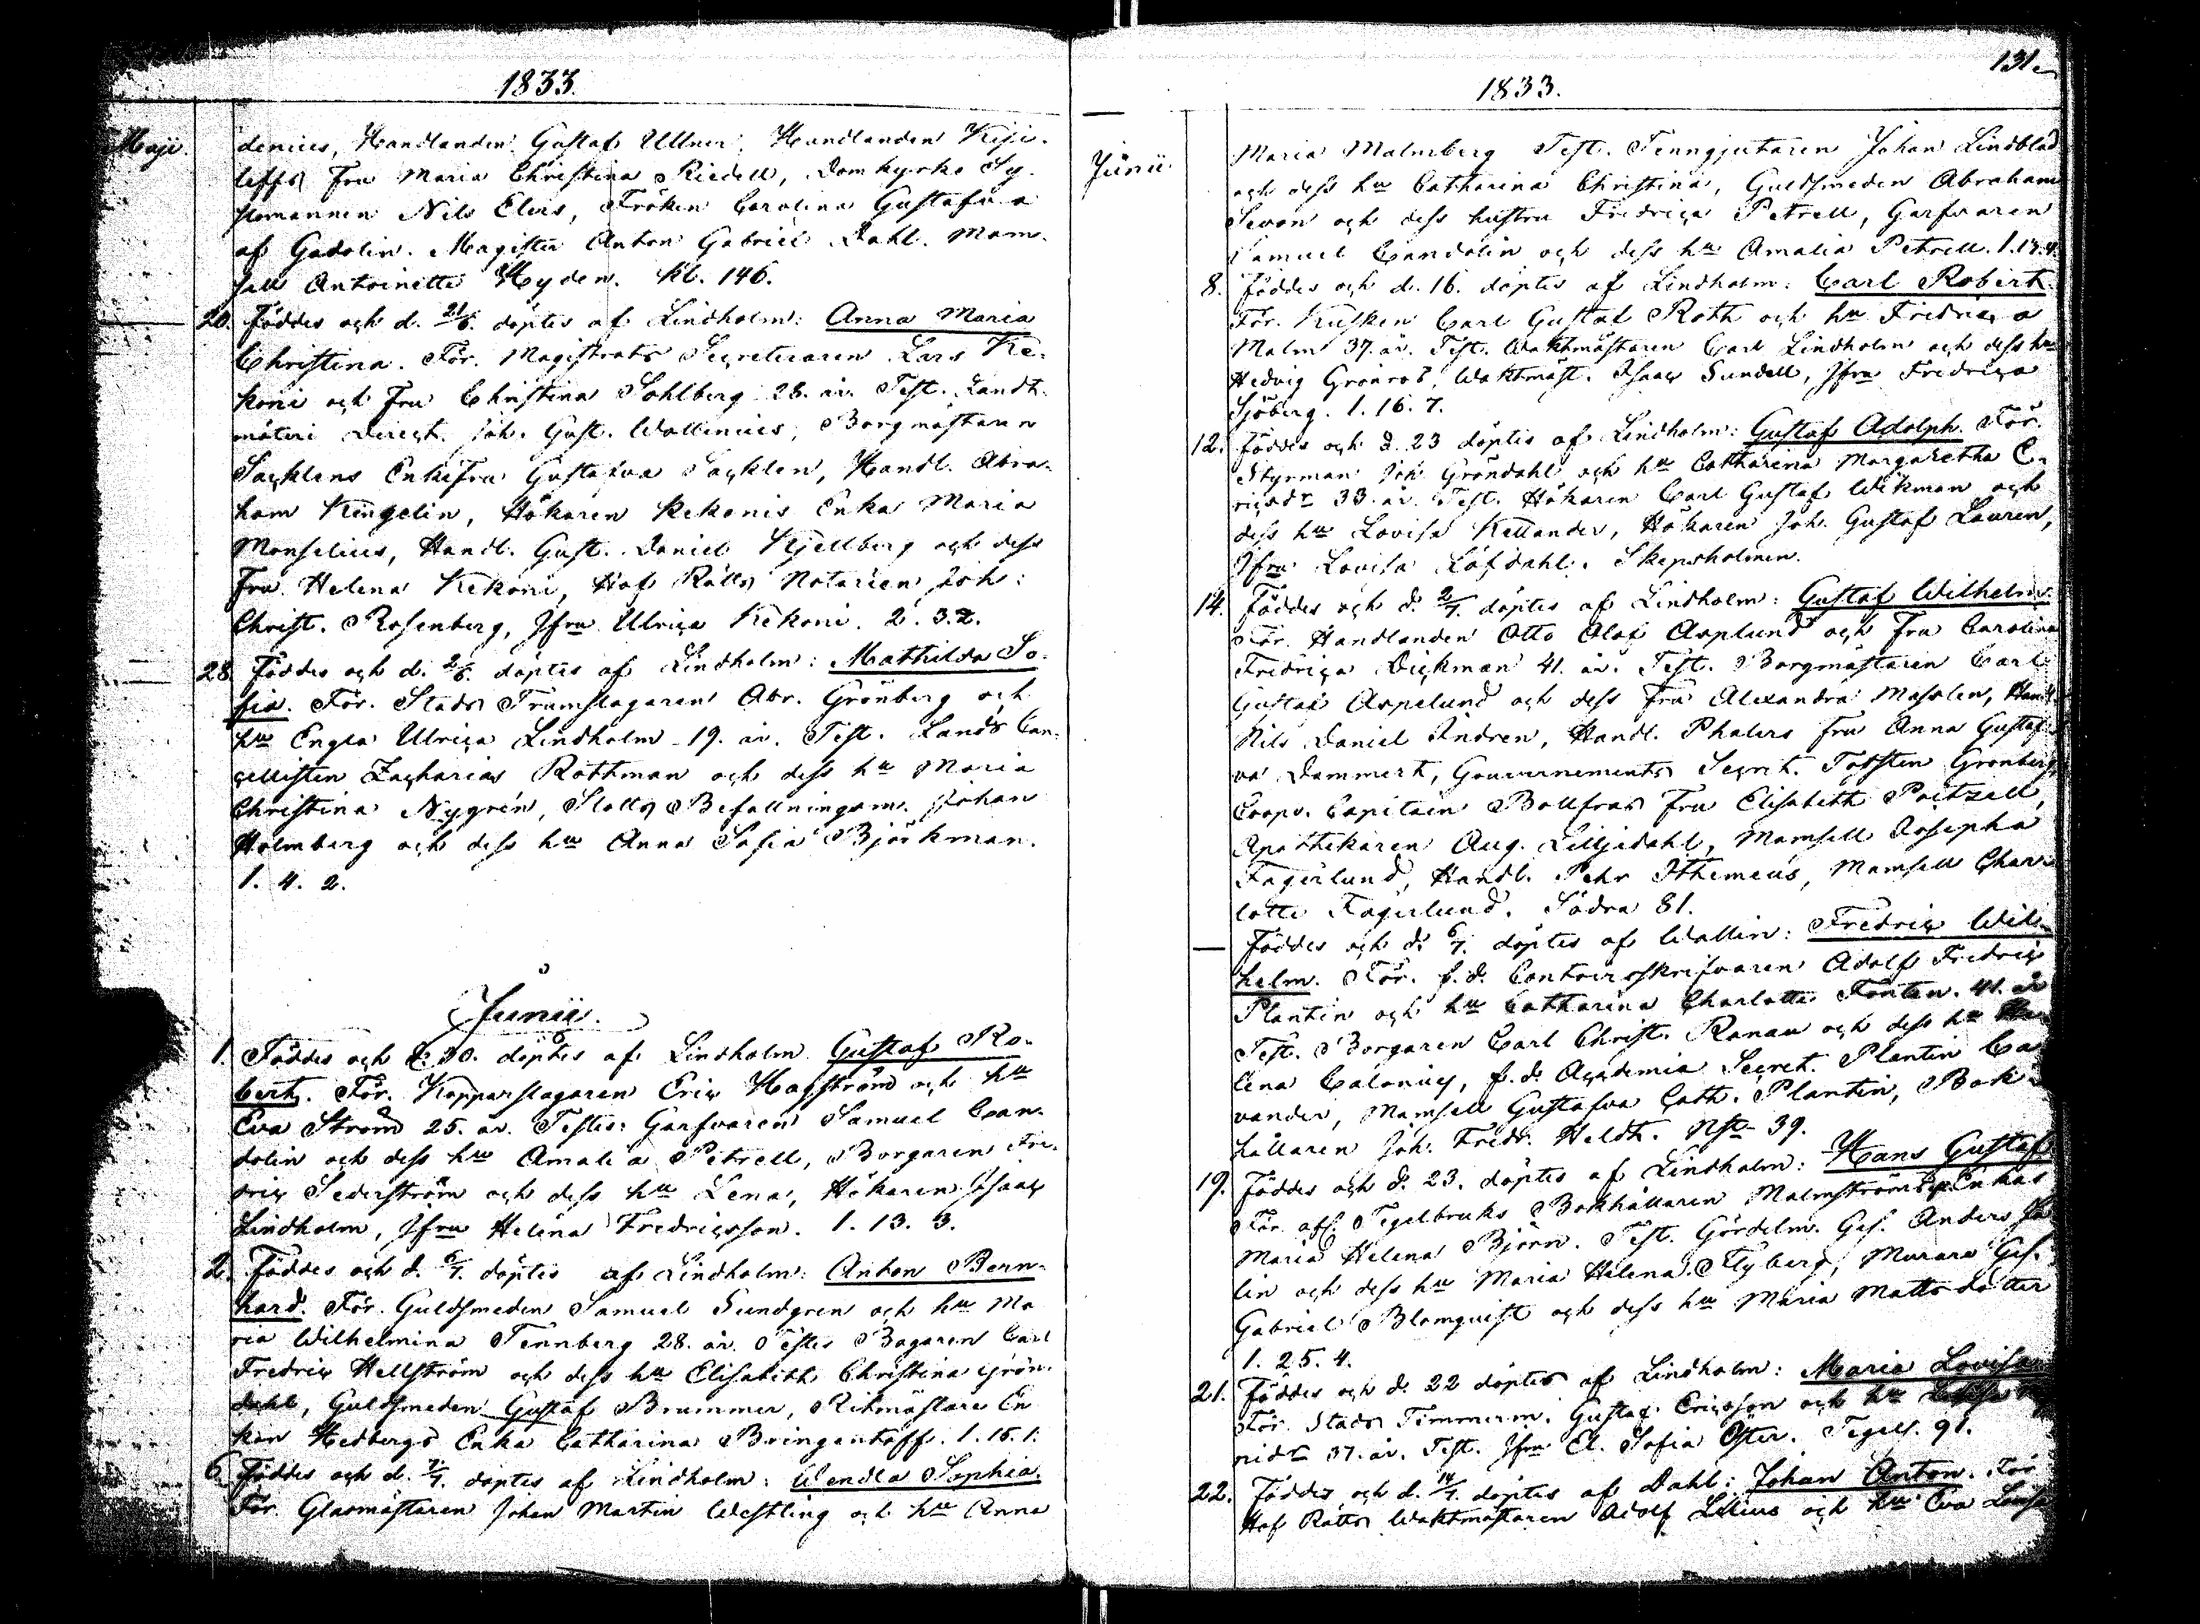 1833.
Maji. denius, Handlanden Gustaf Ullner, Handlanden Kisi-
leffs Fru Maria Christina Riedell, Domkyrko Sy-
slomannen Nils Elers, Fröken Carolina Gustafva
af Gadolin. Magister Anton Gabriel Dahl. Mam-
sell Antoinette Hyden. Kl. 146.
20. Föddes och d. 21/6. döptes af Lindholm: Anna Maria
Christina. För. Magistrats Secreteraren Lars Ke-
koni och Fru Christina Sohlberg 28. år. Test. Landt-
mäteri Direct. Joh. Gust. Wallenius, Borgmästaren
Sacklens Enkefru Gustafva Sacklen, Handl. Abra-
ham Kingelin, Hökaren Kekonis Enka Maria
Monselius, Handl. Gust. Daniel Kjellberg och dess
Fru Helena Kekoni, Hof Rätts Notarien Joh:
Christ. Rosenberg, Jfru Ulrica Kekoni. 2. 3. 2.
28. Föddes och d. 2/6. döptes af Lindholm: Mathilda So-
fia. För. Stads Trumslagaren Abr. Grönberg och
hu Engla Ulrica Lindholm 19. år. Test. Lands Can-
cellisten Zacharias Rothman och dess hu Maria
Christina Nygrén, Slotts Befallningsm. Johan
Holmberg och dess hu Anna Sofia Björkman.
1. 4. 2.
Junii.
1. Föddes och d. 30. döptes af Lindholm Gustaf Ro-
bert. För. Kopparslagaren Eric Hagström och hu
Eva Ström 25. år. Testes: Garfvaren Samuel Can-
dolin och dess hu Amalia Petrell, Borgaren Fre-
dric Sederström och dess hu Lena, Hökaren Isaac
Lindholm, Jfru Helena Fredricsson. 1. 13. 3.
2. Föddes och d. 6/7. döptes af Lindholm: Anton Bern-
hard. För. Guldsmeden Samuel Sundgren och hu Ma
ria Wilhelmina Tennberg 28. år. Testes Bagaren Carl
Fredric Hellström och dess hu Elisabeth Christina Grön-
dahl, Guldsmeden Gustaf Brummer, Ritmästare En
kan Hedbergs Enka Catharina Bringentoff. 1. 15. 1.
6. Föddes och d. 7/7. döptes af Lindholm: Wendla Sophia.
För. Glasmästaren Johan Martin Westling och hu Anna
131.
1833.
Junii. Maria Malmberg Test. Tenngjutaren Johan Lindblad
och dess hu Catharina Christina, Guldsmeden Abraham
Sevon och dess hustru Fredrica Petrell, Garfvaren
Samuel Candolin och dess hu Amalia Petrell. 1. 13. 4.
8. Föddes och d. 16. döptes af Lindholm: Carl Robert.
För. Kusken Carl Gustaf Roth och hu Fredrica
Malm 37. år. Test. Waktmästaren Carl Lindholm och dess hu
Hedvig Grönros, Waktmäst. Isaac Sundell, Jfru Fredrica
Sjöberg. 1. 16. 7.
12. Föddes och d. 23 döptes af Lindholm: Gustaf Adolph. För.
Styrman Joh. Gröndahl och hu Catharina Margaretha E-
ricsdr 33. år. Test. Hökaren Carl Gustaf Wikman och
dess hu Lovisa Kellander, Hökaren Joh. Gustaf Lauren,
Jfru Lovisa Löfdahl. Skepsholmen.
14. Föddes och d. 2/7. döptes af Lindholm: Gustaf Wilhelm.
För. Handlanden Otto Olof Asplund och Fru Carolina
Fredrica Dickman 41. år. Test. Borgmästaren Carl
Gustaf Aspelund och dess Fru Alexandra Masalen, Handl.
Nils Daniel Indren, Handl. Phalers Fru Anna Gustaf-
va Dammert, Gouvernements Secret. Torsten Grönberg,
Coopv. Capitain Bollfras Fru Elisabeth Paetzell,
Apothekaren Aug. Lilljedahl, Mamsell Josepha
Fagerlund, Handl. Pehr Ithimeus, Mamsell Char-
lotte Fagerlund. Södra 81.
— Föddes och d. 6/7. döptes af Wallin: Fredric Wil-
helm. För. f.d. Contoirsskrifvaren Adolf Fredric
Plantin och hu Catharina Charlotta Fontén. 41. år
Test. Borgaren Carl Christ. Ranau och dess hu
lena Calonius, f.d. Academia Secret. Plantin
vander, Mamsell Gustafva Cath. Plantin, Bok-
hållaren Joh. Fredr. Heldt. Nst 39.
19. Föddes och d. 23. döptes af Lindholm: Hans Gustaf
För. afl. Tegelbruks Bokhållaren Malmströms Enkas
Maria Helena Björn. Test. Gördelm. Ges. Anders
lin och dess hu Maria Helena Flyberg, Murare Ges.
Gabriel Blomquist och dess hu Maria Mattsdotter
1. 25. 4.
21. Föddes och d. 22 döptes af Lindholm: Maria Lovisa
För. Stads Timmerm. Gustaf Ericsson och hu
nidr 37. år. Test. Jfru El. Sofia Öster. Tegels. 91.
22. Föddes och d. 14/7. döptes af Dahl: Johan Anton. För
Hof Rätts Waktmästaren Adolf Lilius och hu Eva Lovisa